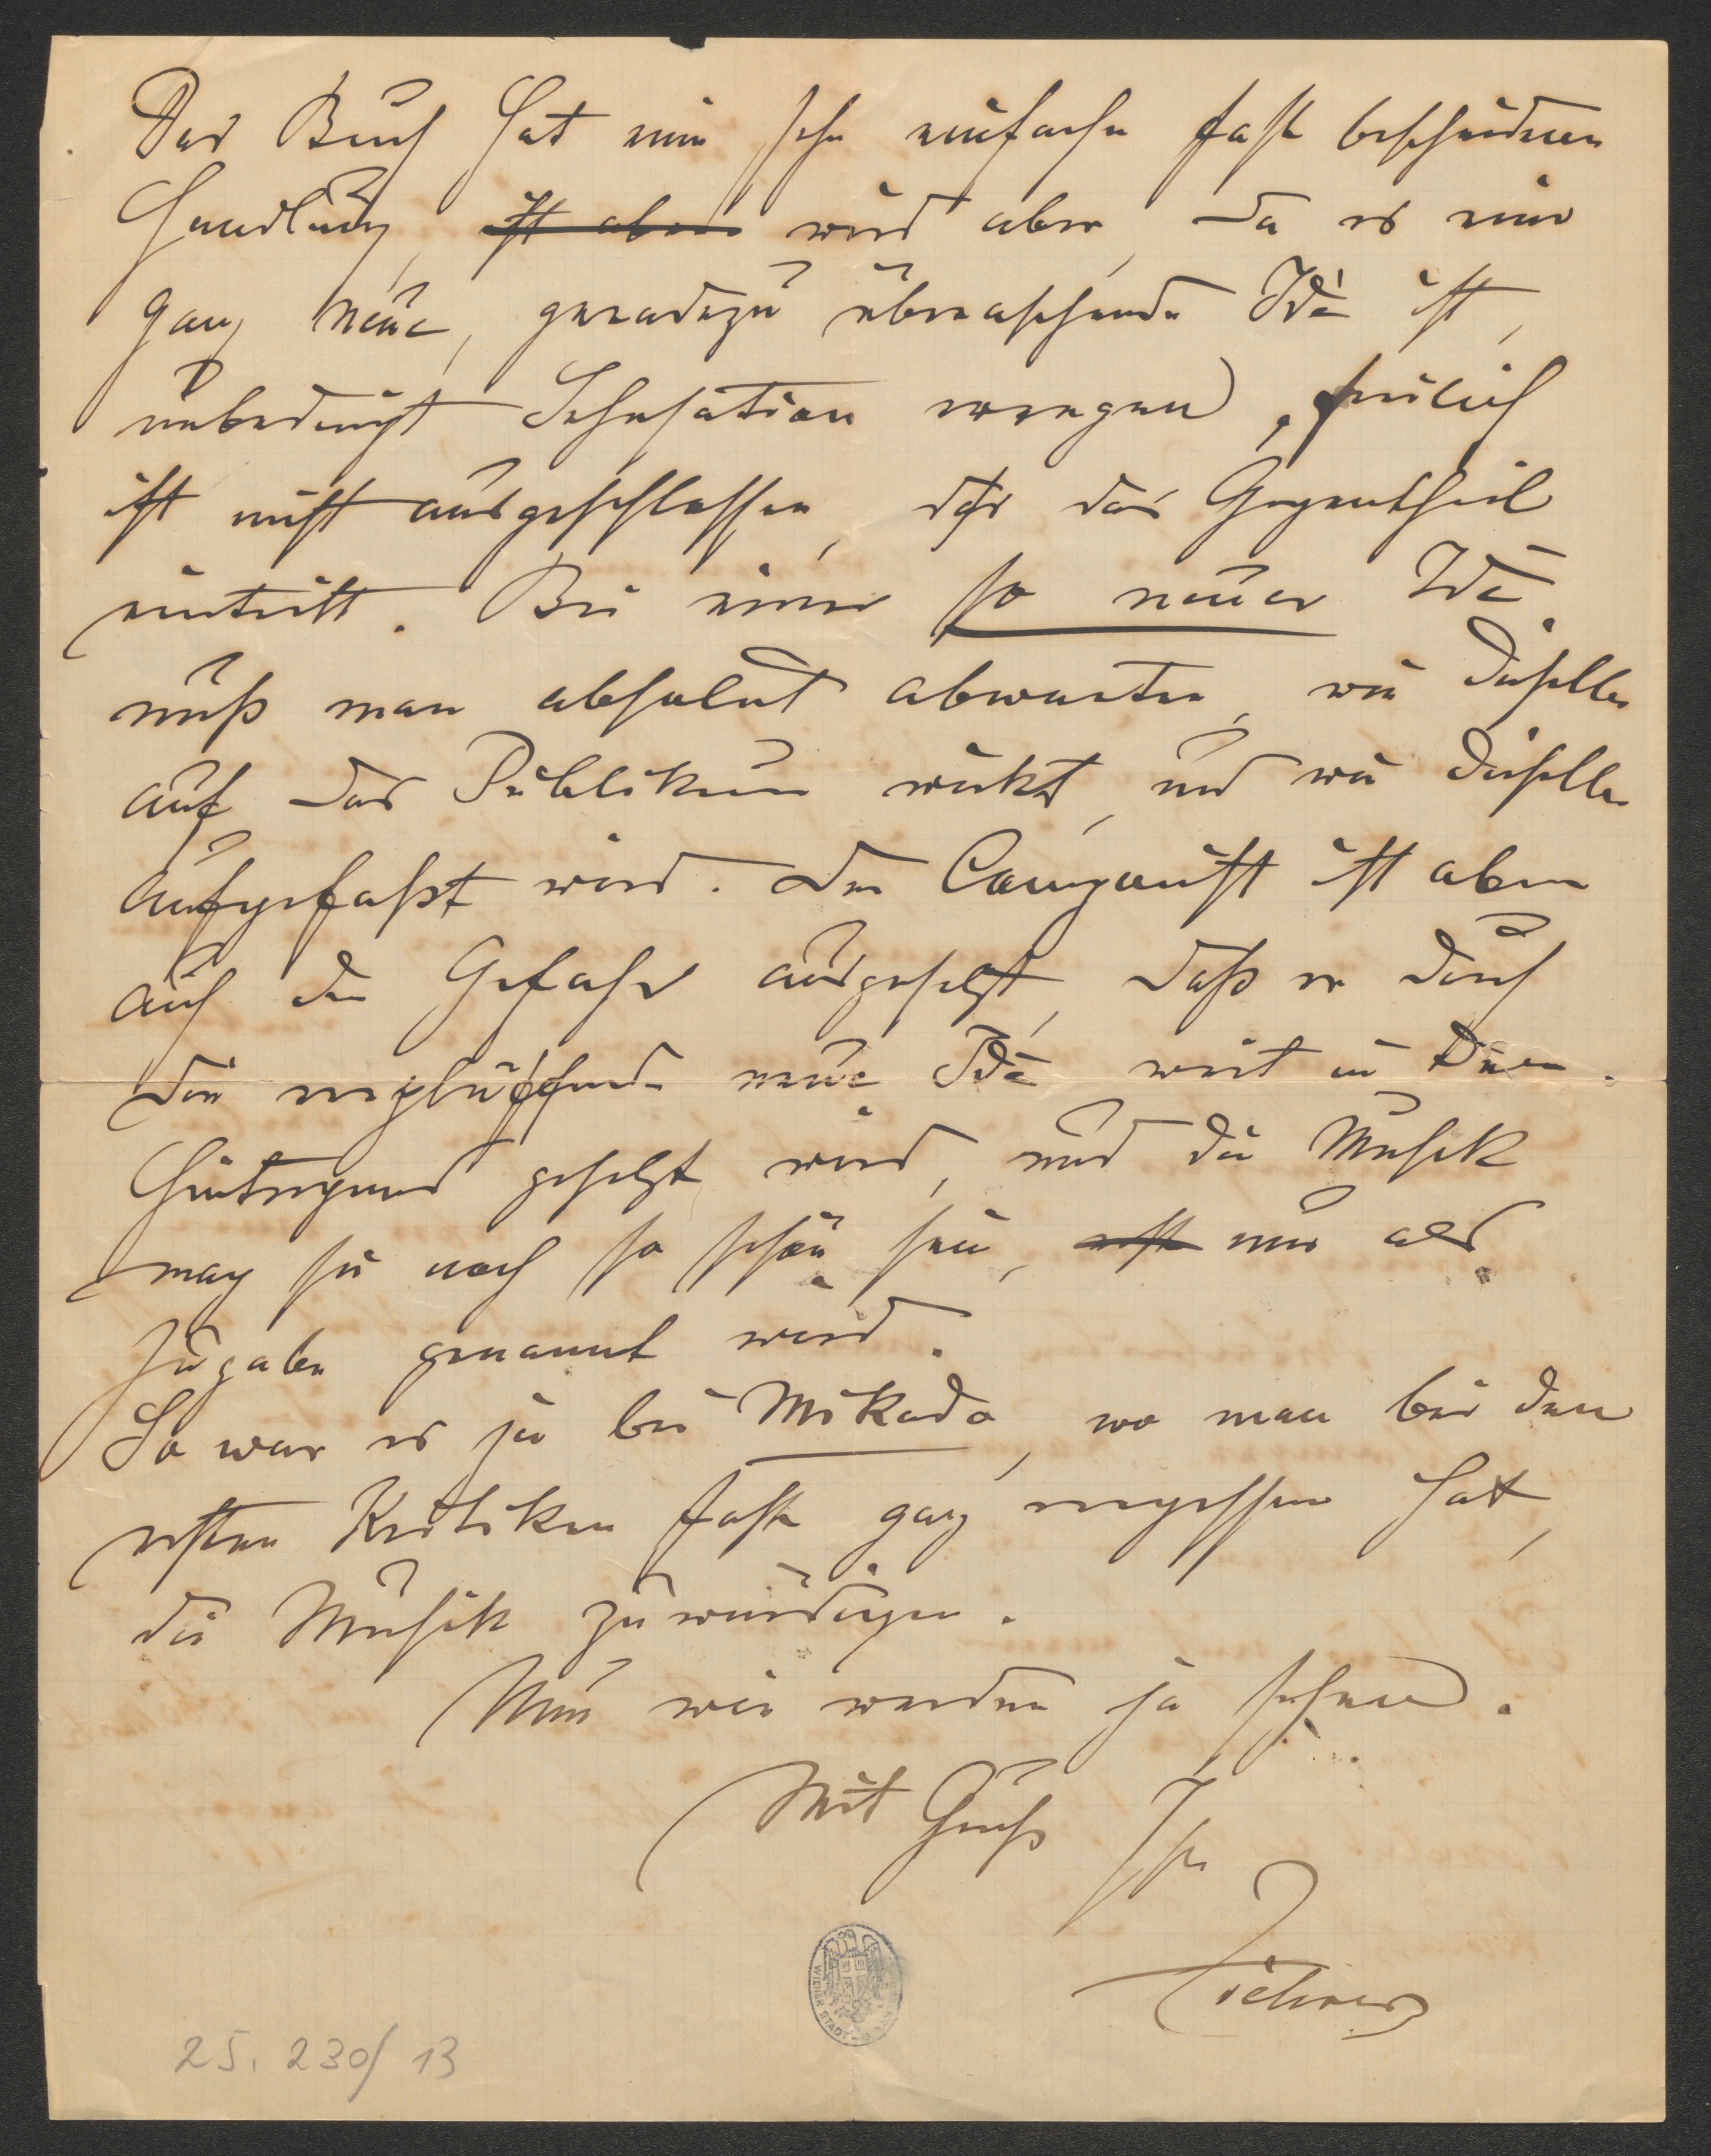 Das Buch hat eine sehr einfache fast bescheidene
Handlung, ist aber wird aber, da es eine
ganz neue, geradezu überraschende Idée ist,
unbedingt Sensation erregen, freilich
ist nicht ausgeschlossen, daß das Gegentheil
eintritt. Bei einer so neuen Idee
muß man absolut abwarten, wie dieselbe
auf das Publikum wirkt, und wie dieselbe
aufgefaßt wird. Der Componist ist aber
auch der Gefahr ausgesetzt, daß er durch
die verplüffende neue Idee weit in den
Hintergrund gesetzt wird, und die Musik
mag sie noch so schön sein, nur als
Zugabe genannt wird.
So war es ja bei Mikado, wo man bei den
ersten Kritiken fast ganz vergessen hat,
die Musik zu würdigen.
Nun wir werden ja sehen.
Mit Gruß Ihr
WIENER STADT
25.230/13